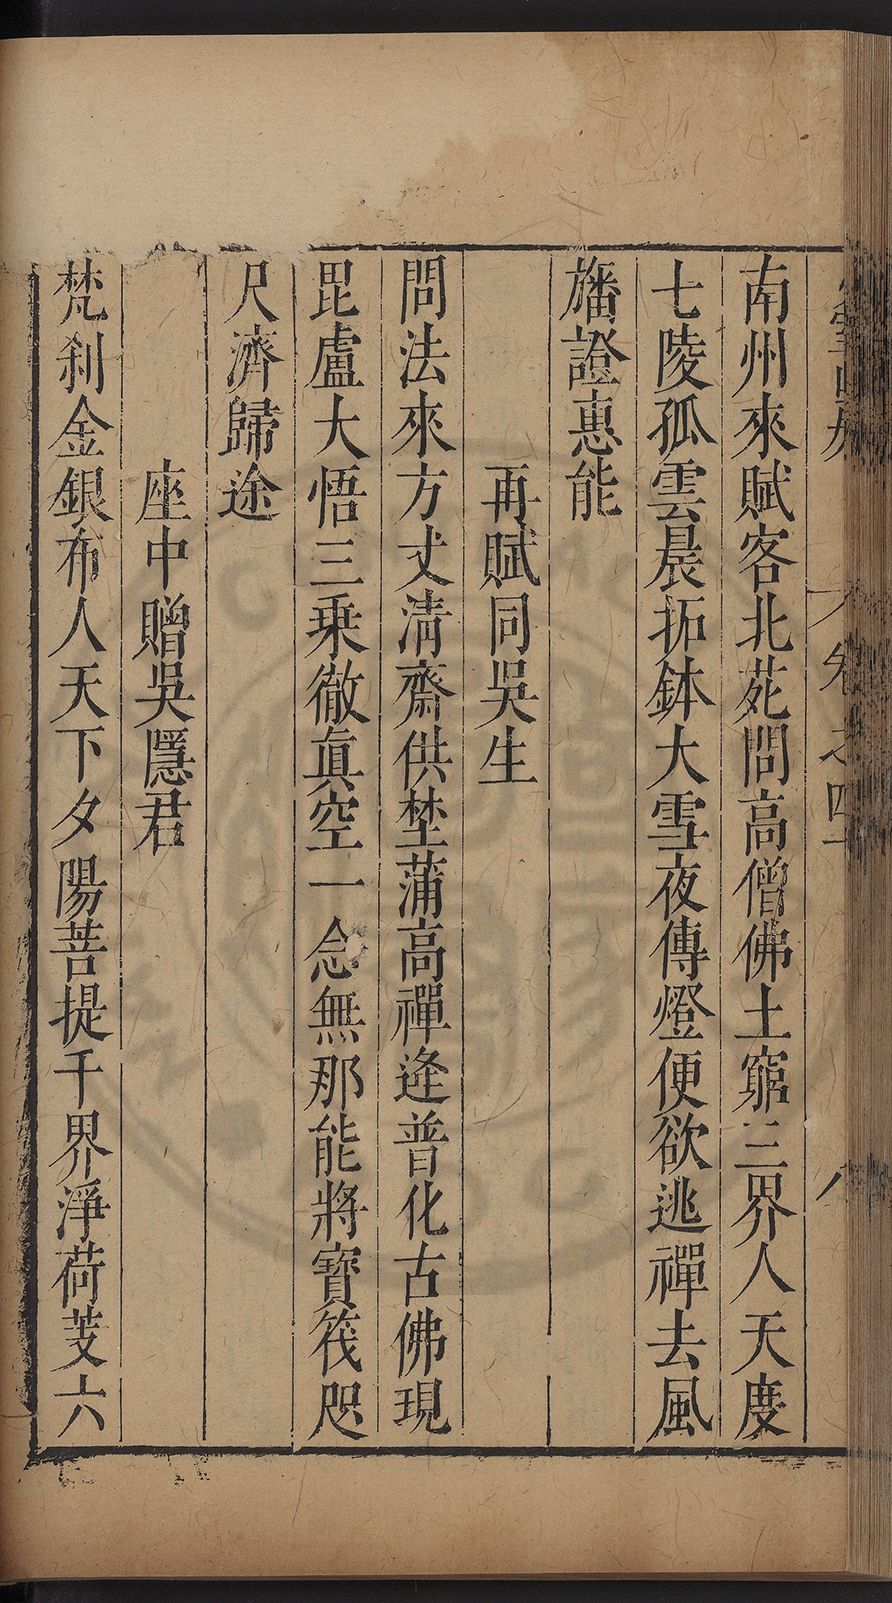 卷之四
八
南州來賦客北苑問高僧佛土窮三界人天度
七陵孤雲晨拓鉢大雪夜傳燈便欲逃禪去風
旛證惠能
再賦同吳生
問法來方丈清齋供埜蒲高禪逢普化古佛現
毘盧大悟三乗徹真空一念無那能將寶筏咫
尺濟歸途
座中贈吳隱君
梵刹金銀布人天下夕陽菩提千界淨荷芰六